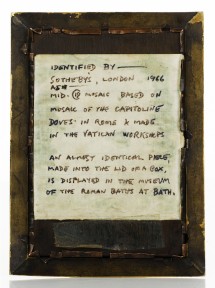 IDENTIFIED BY ———
SOTHEBYS, LONDON 1966
AS A
MID- 19 MOSAIC BASED ON
MOSAIC OF THE CAPITOLINE
DOVES IN ROME & MADE
IN THE VATICAN WORKSHOPS
AN ALMOST IDENTICAL PIECE,
MADE INTO THE LID OF A BOX,
IS DISPLAYED IN THE MUSEUM
OF THE ROMAN BATHS AT BATH.